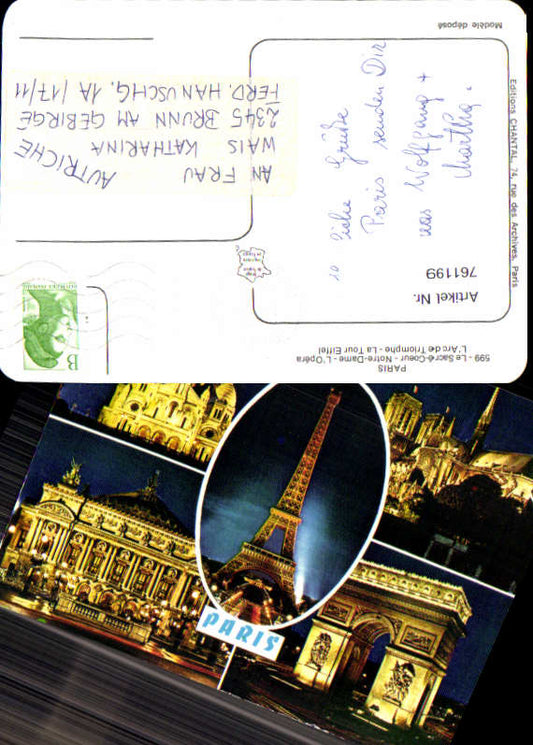 PARIS
599 - Le Sacré-Coeur - Notre-Dame - L'Opéra
L'Arc de Triomphe - La Tour Eiffel
Artikel Nr.
761199
liebe Grüße
Paris senden Dir
Wolfgang +
Martha.
B
AN FRAU
WAIS KATHARINA
2345 BRUNN AM GEBIRGE
FERD. HANUSCHG. 1A / 17/11
AUTRICHE
Editions CHANTAL, 74, rue des Archives, Paris
Modèle déposé
PARIS